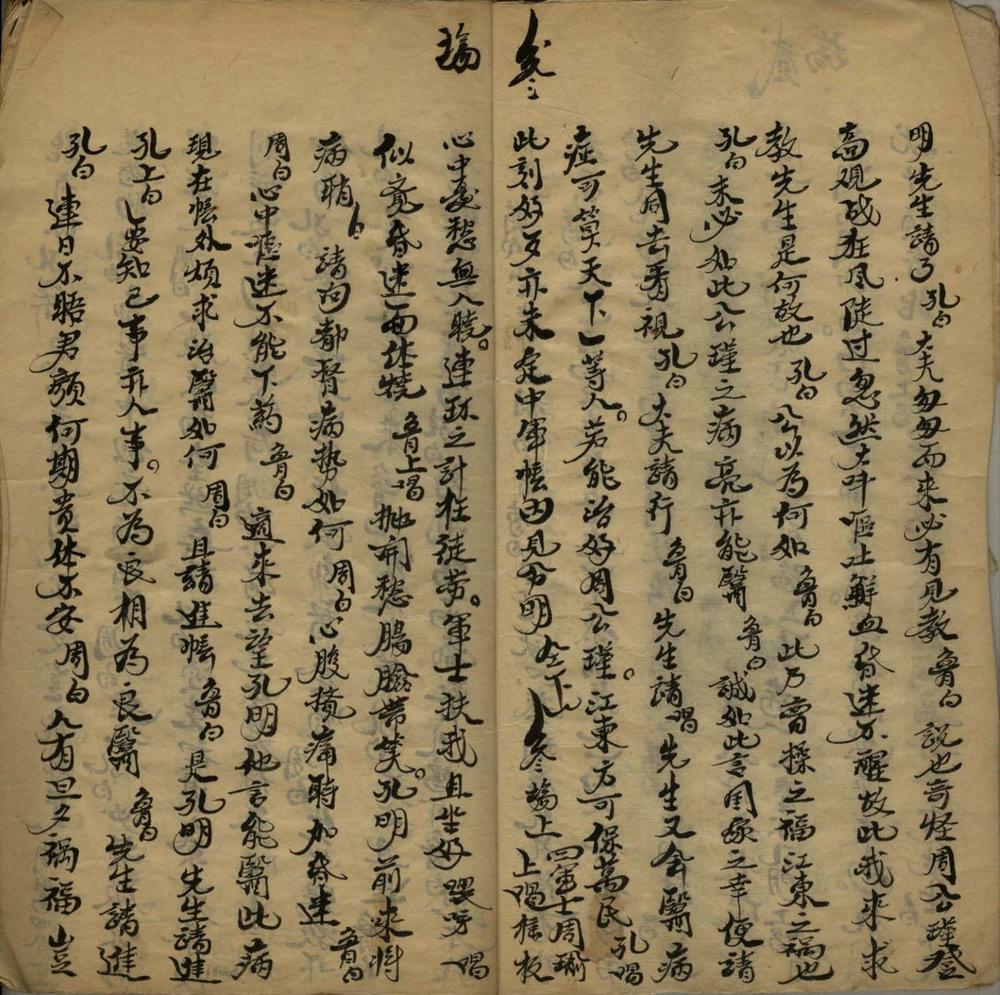 明先生請了 孔白 大夫匆匆而來必有見教 魯白 說也奇怪周公瑾登
高观战狂風陡过忽然大叫嘔吐鮮血昏迷不醒故此我来求
教先生是何故也 孔白 公以為何如 魯白 此乃曹操之福江東之禍也
孔白 未必如此公瑾之病亮亦能醫 魯白 誠如此言國家之幸便請
先生同去看視 孔白 大夫請行 魯白 先生請 唱 先生又會醫病
症可算天下一等人。若能治好周公瑾。江東方可保萬民 孔唱
此刻好歹亦未定中軍帳內見分明 仝下 場上 四軍士周瑜上唱搖板
場
心中憂愁無人曉。連环之計枉徒劳。軍士扶我且坐好 唱
似竟昏迷一面体燒 魯上唱 抛開愁腸臉帶笑。孔明前來将
病瞧 白 請问都督病势如何 周白 心腹搅痛時加昏迷 魯白
周白 心中嘔迷不能下葯 魯白 適来去望孔明他言能醫此病
現在帳外煩求治醫如何 周白 且請進帳 魯白 是孔明先生請進
孔上白 要知己事亦人事。不為良相為良醫 魯白 先生請進
孔白 連日不晤君颜何期贵体不安 周白 人有旦夕禍福豈